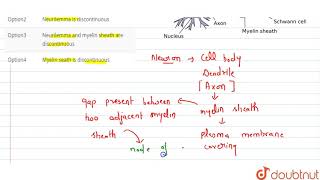 Option2 Neurilemma is discontinuous
Option3 Neurilemma and myelin sheath are discontinuous
Option4 Myelin seath is discontinuous
Axon
Schwann cell
Myelin sheath
Nucleus
Neuron → Cell body
Dendrite
[Axon]
gap present between
two adjacent myelin
sheath
node of
myelin sheath
Plasma membrane
covering
doubtnut